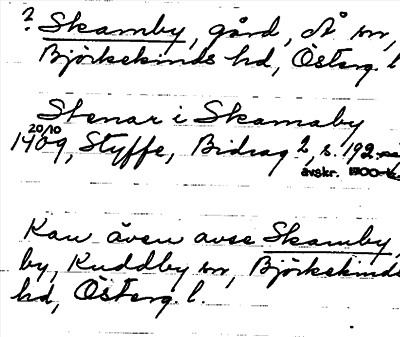 ? Skamby, gård, Å sn,
Björkekinds hd, Österg. l
Stenar i Skamaby
20/10
1409, Styffe, Bidrag 2, s. 192
avskr. 1800-t
Kan även avse Skamby,
by, Kuddby sn, Björkekinds
hd, Österg. l.